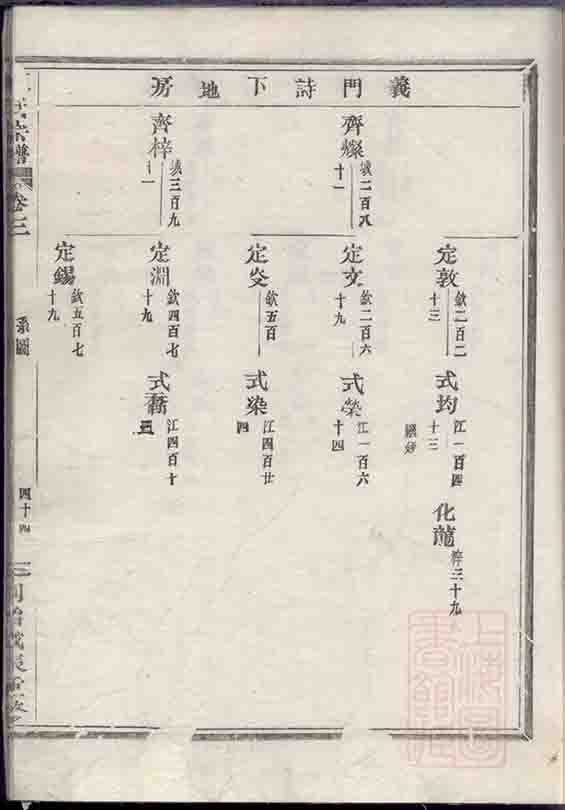 義門詩下地房
齊燦
十一
二百八
齊梓
十一
三百九
定敦
欽二百二
十三
定文
欽二百六
十九
定炎
欽五百
定淵
欽四百七
十九
定錫
欽五百七
十九
式均
江一百四
十三
式榮
江一百六
十四
式染
江四百廿
四
式喬
江四百十
化龍
三十九
宗譜
卷三
系圖
四十四
上海圖書館藏